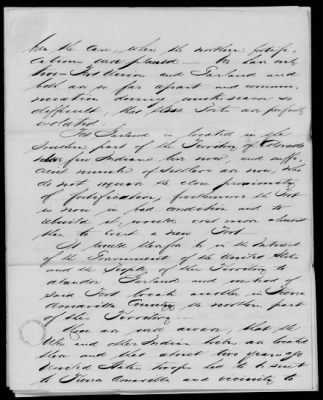 been the case, when the northern fortifi-
cations were planned — We have only
two — Fort Union and Garland and
both are so far apart and commu-
nication during winter season so
difficult, that these Forts are perfectly
isolated.
Fort Garland is located in the
Southern part of the Territory of Colorado
where few Indians live now, and suffi-
cient number of settlers are now, who
do not require the close proximity
of fortification, furthermore the Fort
is now in bad condition and to
rebuild it, would cost more almost
than to erect a new Fort.
It would therefore be in the Interest
of the Government of the United States
and the People of this Territory to
abandon Garland and instead of
said Fort locate another in Tierra
Amarilla Country in northern part
of this Territory. —
You are well aware, that the
Utes and other Indian tribes are located
there and that about two years ago
United States troops had to be sent
to Tierra Amarilla and vicinity to